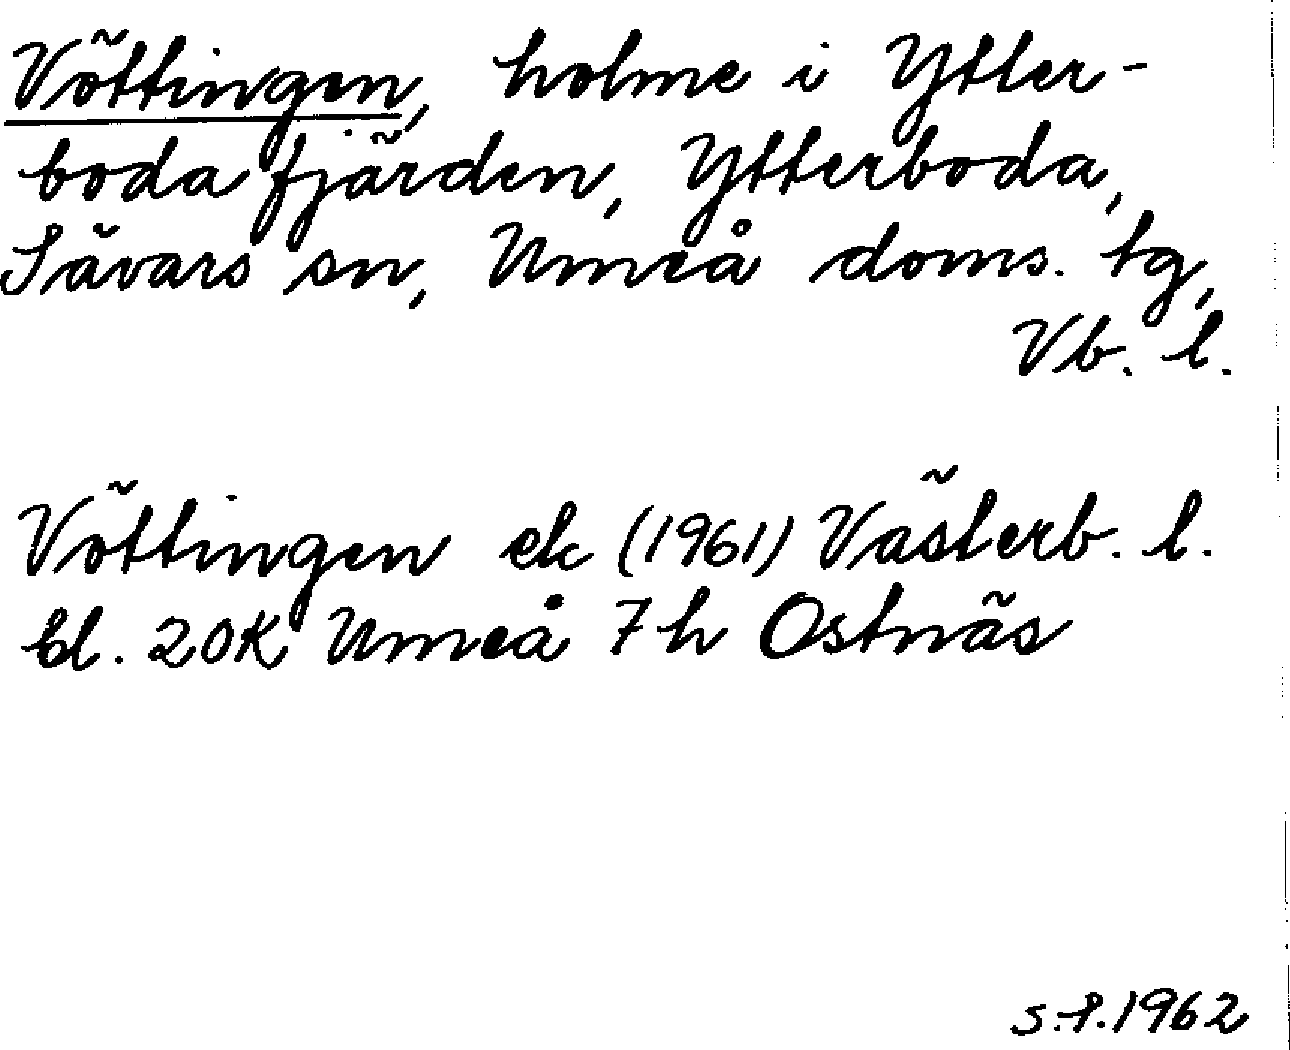 Vöttingen, holme i Ytter-
boda fjärden, Ytterboda,
Sävars sn, Umeå doms. tg,
Vb. l.
Vöttingen ek (1961) Västerb. l.
bl. 20K Umeå 7h Ostnäs
s.f.1962